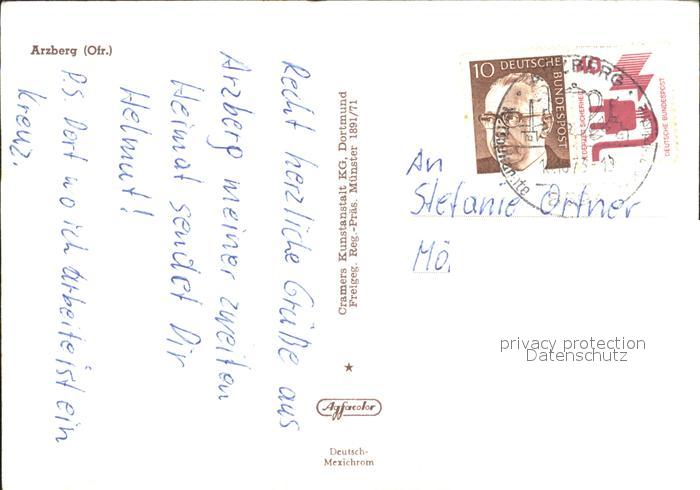 Arzberg (Ofr.)
Recht herzliche Grüße aus
Arzberg meiner zweiten
Heimat sendet Dir
Helmut!
P.S. Dort wo ich arbeite ist ein
Kreuz.
Cramers Kunstanstalt KG, Dortmund
Freigeg. Reg.-Präs. Münster 1891/71
Agfacolor
Deutsch-
Mexichrom
10 DEUTSCHE BUNDESPOST
10
DEUTSCHE BUNDESPOST
ARZBERG
An
Stefanie Ortner
Mö.
privacy protection
Datenschutz